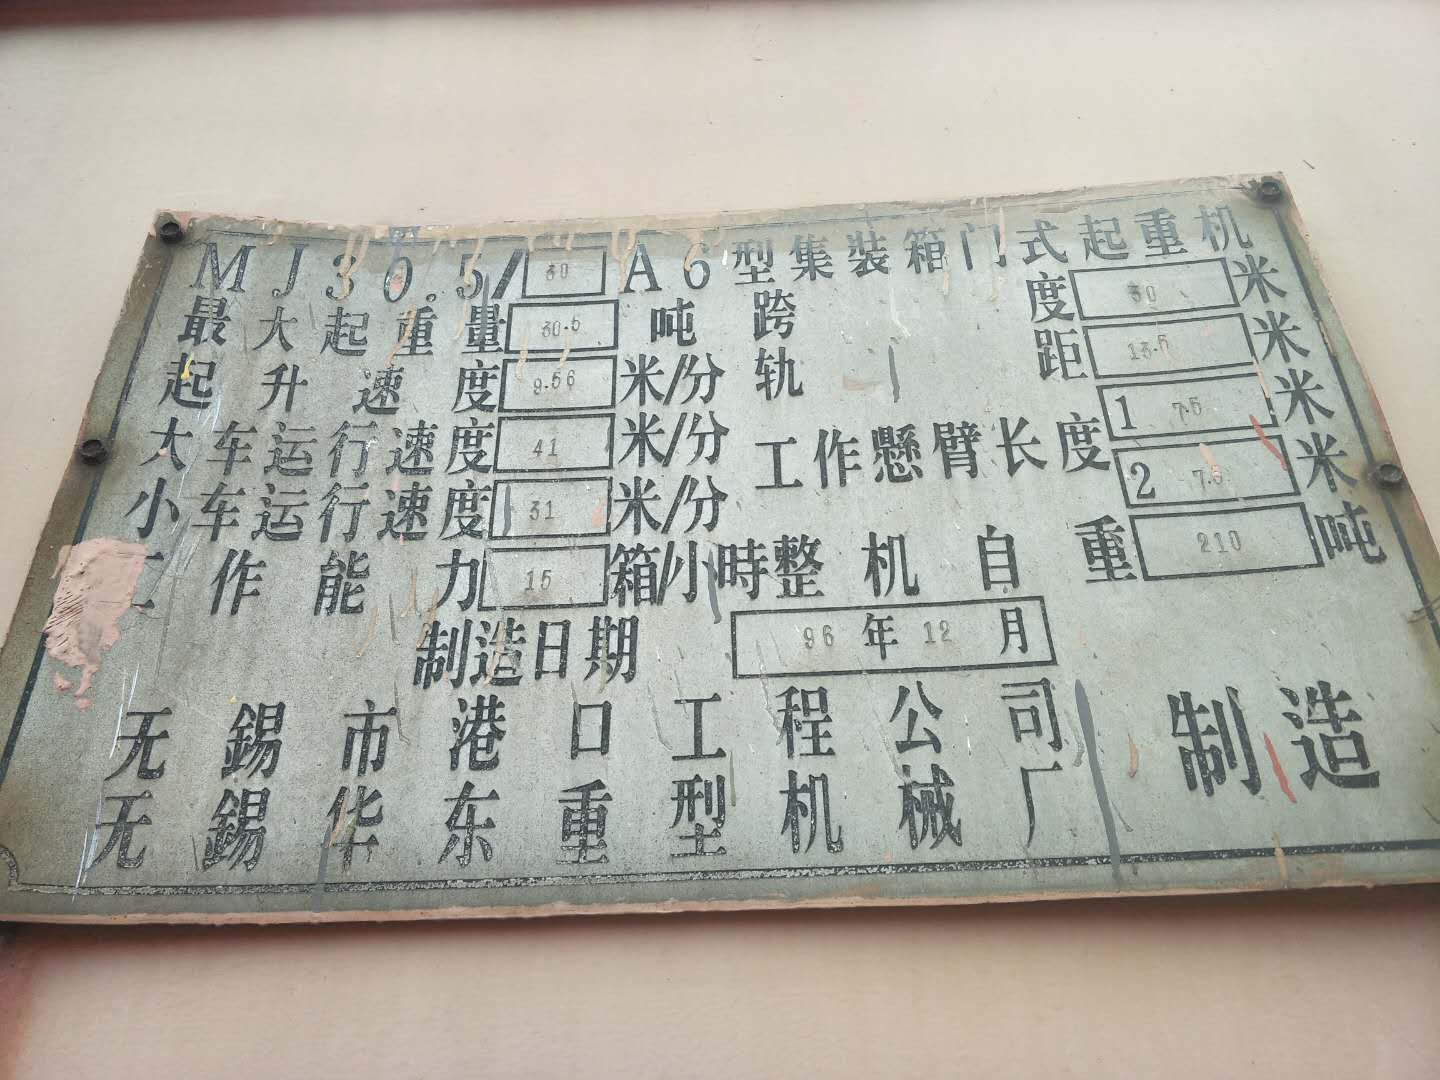 MJ30.5/30 A6型集裝箱门式起重机
最大起重量 30.5 吨 跨度 30 米
起升速度 9.56 米/分 轨距 13.5 米
大车运行速度 41 米/分 工作懸臂长度 1 7.5 米
小车运行速度 31 米/分 2 7.5 米
工作能力 15 箱/小時 整机自重 210 吨
制造日期 96年12月
无錫市港口工程公司
无錫华东重型机械厂 制造